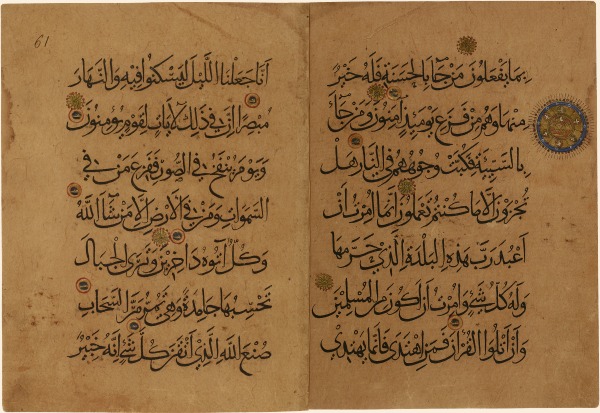 61
أَنَّا جَعَلْنَا اللَّيْلَ لِيَسْكُنُوا فِيهِ وَالنَّهَارَ
مُبْصِرًا إِنَّ فِي ذَلِكَ لَآيَاتٍ لِقَوْمٍ يُؤْمِنُونَ
وَيَوْمَ يُنْفَخُ فِي الصُّورِ فَفَزِعَ مَنْ فِي
السَّمَوَاتِ وَمَنْ فِي الْأَرْضِ إِلَّا مَنْ شَاءَ اللَّهُ
وَكُلٌّ أَتَوْهُ دَاخِرِينَ وَتَرَى الْجِبَالَ
تَحْسِبُهَا جَامِدَةً وَهِيَ تَمُرُّ مَرَّ السَّحَابِ
صُنْعَ اللَّهِ الَّذِي أَتْقَنَ كُلَّ شَيْءٍ إِنَّهُ خَبِيرٌ
بِمَا يَفْعَلُونَ مَنْ جَاءَ بِالْحَسَنَةِ فَلَهُ خَيْرٌ
مِنْهَا وَهُمْ مِنْ فَزَعِ يَوْمَئِذٍ آمِنُونَ وَمَنْ جَاءَ
بِالسَّيِّئَةِ فَكُبَّتْ وُجُوهُهُمْ فِي النَّارِ هَلْ
تُجْزَوْنَ إِلَّا مَا كُنْتُمْ تَعْمَلُونَ إِنَّمَا أُمِرْتُ أَنْ
أَعْبُدَ رَبَّ هَذِهِ الْبَلْدَةِ الَّذِي حَرَّمَهَا
وَلَهُ كُلُّ شَيْءٍ وَأُمِرْتُ أَنْ أَكُونَ مِنَ الْمُسْلِمِينَ
وَأَنْ أَتْلُوَا الْقُرْآنَ فَمَنِ اهْتَدَى فَإِنَّمَا يَهْتَدِي